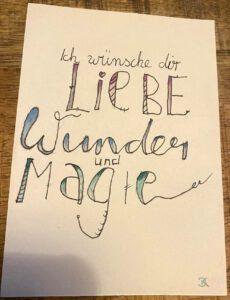 Ich wünsche dir
LIEBE
Wunder
und
MAGIE